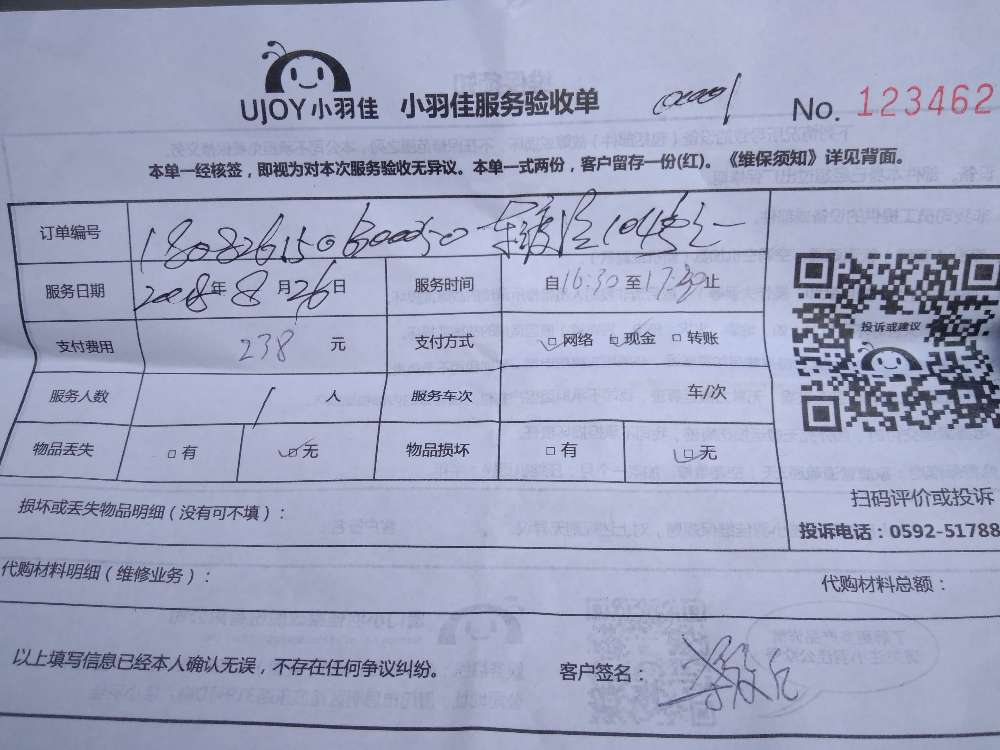 UJOY小羽佳 小羽佳服务验收单 No. 123462
本单一经核签，即视为对本次服务验收无异议。本单一式两份，客户留存一份(红)。《维保须知》详见背面。
订单编号
服务日期 2018年8月26日 服务时间 自16:30至17:30止
支付费用 238 元 支付方式 □网络 □现金 □转账
服务人数 1 人 服务车次 车/次
物品丢失 □有 □无 物品损坏 □有 □无
投诉或建议
扫码评价或投诉
损坏或丢失物品明细（没有可不填）：
投诉电话：0592-51788
代购材料明细（维修业务）： 代购材料总额：
以上填写信息已经本人确认无误，不存在任何争议纠纷。 客户签名：